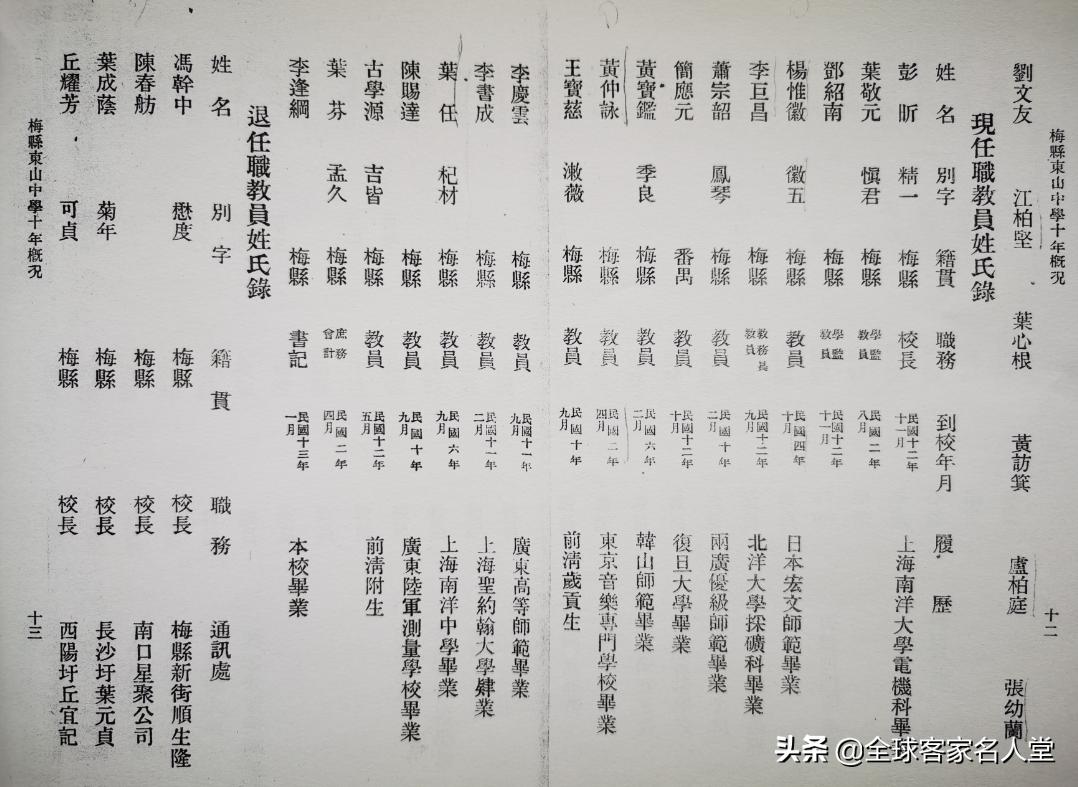 梅縣東山中學十年概況
十二
劉文友 江柏堅 葉心根 黃訪箕 盧柏庭 張幼蘭
現任職教員姓氏錄
姓名 別字 籍貫 職務 到校年月 履歷
彭昕 精一 梅縣 校長 民國十二年十一月 上海南洋大學電機科畢
葉敬元 愼君 梅縣 學監教員 民國二年八月
鄧紹南 梅縣 學監教員 民國十二年十一月
楊惟徽 徽五 梅縣 教員 民國四年十月 日本宏文師範畢業
李巨昌 梅縣 教務長教員 民國十二年九月 北洋大學採礦科畢業
蕭宗韶 鳳琴 梅縣 教員 民國十年二月 兩廣優級師範畢業
簡應元 番禺 教員 民國十二年十月 復旦大學畢業
黃寶鑑 季良 梅縣 教員 民國六年二月 韓山師範畢業
黃仲詠 梅縣 教員 民國二年四月 東京音樂專門學校畢業
王寶慈 漱薇 梅縣 教員 民國十年九月 前淸歲貢生
李慶雲 梅縣 教員 民國十一年九月 廣東高等師範畢業
李書成 梅縣 教員 民國十一年二月 上海聖約翰大學肄業
葉任 杞材 梅縣 教員 民國六年九月 上海南洋中學畢業
陳賜達 梅縣 教員 民國十年九月 廣東陸軍測量學校畢業
古學源 吉皆 梅縣 教員 民國十二年五月 前淸附生
葉芬 孟久 梅縣 庶務會計 民國二年四月
李逢綱 梅縣 書記 民國十三年一月 本校畢業
退任職教員姓氏錄
姓名 別字 籍貫 職務 通訊處
馮幹中 懋度 梅縣 校長 梅縣新街順生隆
陳春舫 梅縣 校長 南口星聚公司
葉成蔭 菊年 梅縣 校長 長沙圩葉元貞
丘耀芳 可貞 梅縣 校長 西陽圩丘宜記
梅縣東山中學十年概況
十三
头条 @全球客家名人堂